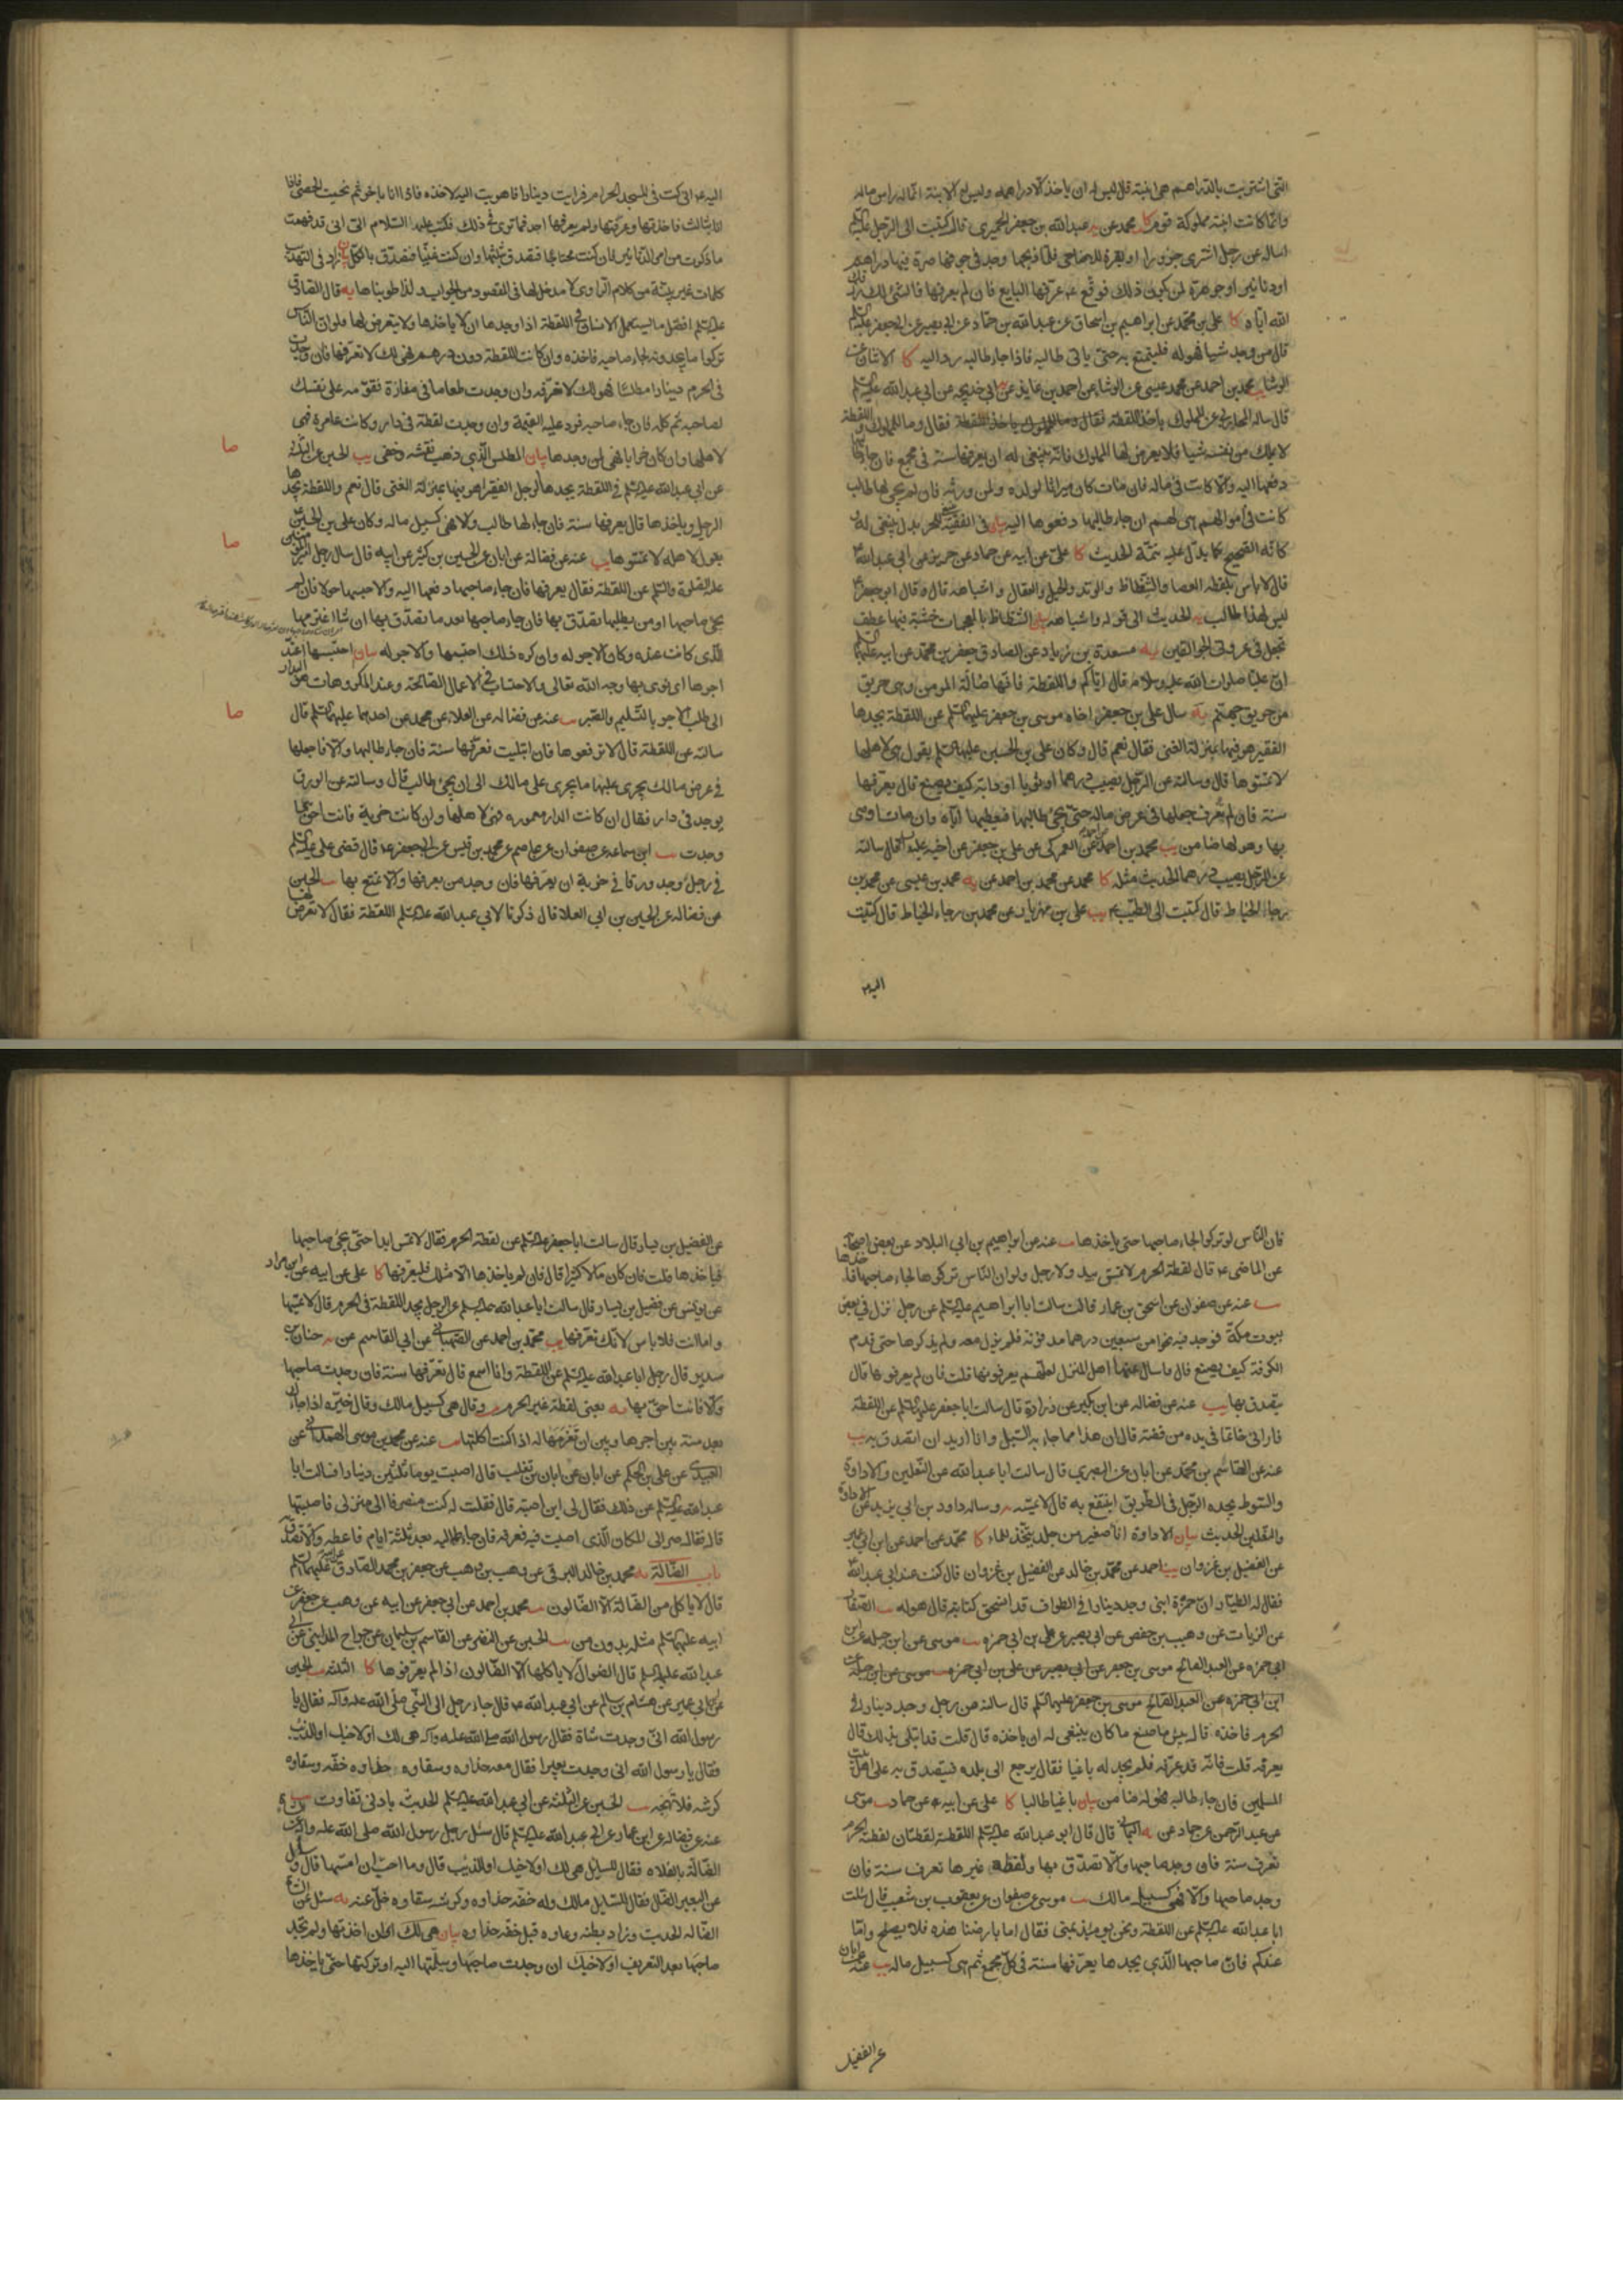 التى اشتريت بالدراهم هى ابنته قال ليس له ان ياخذ الا دراهمه وليس له الابنة انما له راس ماله
وانما كانت ابنة مملوكة قوم كا محمد عن يه عبدالله بن جعفر الحميرى قال كتبت الى الرجل عليه السلم
اساله عن رجل اشترى جزورا او بقرة للاضاحى فلما ذبحها وجد فى جوفها صرة فيها دراهم
او دنانير او جوهرة لمن يكون ذلك فوقع ع عرفها البايع فان لم يعرفها فالشئ لك رزقك
الله اياه كا على بن محمد عن ابراهيم بن اسحاق عن عبدالله بن حماد عن ابى بصير عن ابى جعفر عليه السلم
قال من وجد شيا فهو له فليتمتع به حتى ياتى طالبه فاذا جاء طالبه رده اليه كا الاثنان عن
الوشا يب محمد بن احمد عن محمد عيسى عن الوشا عن احمد بن عايذ عن ابى خديجه عن ابى عبدالله عليه السلم
قال ساله المحاربى عن المملوك ياخذ اللقطة فقال وما للمملوك واللقطة
لا يملك من نفسه شيا فلا يعرض لها المملوك فانه ينبغى له ان يعرفها سنة فى مجمع فان جاء طالبها
دفعها اليه والا كانت فى ماله فان مات كان ميراثا لولده ولمن ورثه فان لم يجئ لها طالب
كانت فى اموالهم هى لهم ان جاء طالبها دفعوها اليه بيان فى الفقيه للحر بدل ينبغى له
كانه الصحيح كما يدل عليه تتمة الحديث كا على عن ابيه عن حماد عن حريز عن ابى عبدالله ع
قال لا باس بلقطة العصا والشظاظ والوتد والحبل والعقال واشباهه قال وقال ابو جعفر ع
ليس لهذا طالب يه الحديث الى قوله واشباهه بيان الشظاظ بالمعجمات خشبة فيها عطف
تجعل فى عروتى الجوالقين يه مسعدة بن زياد عن الصادق جعفر بن محمد عن ابيه عليهما السلم
ان عليا صلوات الله عليه وسلامه قال اياكم واللقطة فانها ضالة المومن وهى حريق
من حريق جهنم يه سال على بن جعفر اخاه موسى بن جعفر عليهما السلم عن اللقطة يجدها
الفقير هو فيها بمنزلة الغنى فقال نعم قال وكان على بن الحسين عليهما السلم يقول هى لاهلها
لا تمسوها قال وسالته عن الرجل يصيب درهما او ثوبا او دابة كيف يصنع قال يعرفها
سنة فان لم يعرف جعلها فى عرض ماله حتى يجئ طالبها فيعطيها اياه وان مات اوصى
بها وهو لها ضامن يب محمد بن احمد عن العمركى عن على بن جعفر عن اخيه عليه السلم قال سالته
عن الرجل يصيب درهما الحديث مثله كا محمد عن محمد بن احمد عن يه محمد بن عيسى عن محمد بن
رجاء الخياط قال كتبت الى الطيب ع يب على بن مهزيار عن محمد بن رجاء الخياط قال كتبت
اليه ع
اليه ع انى كنت فى المسجد الحرام فرايت دينارا فاهويت اليه لاخذه فاذا انا باخر ثم نحيت الحصى فاذا
انا بثالث فاخذتها وعرفتها ولم يعرفها احد فما ترى فى ذلك فكتب عليه السلام الى انى قد فهمت
ما ذكرت من امر الدنانير فان كنت محتاجا فتصدق بثلثها وان كنت غنيا فتصدق بالكل بيان زاد فى التهذيب
كلمات غير بينة من كلام الراوى لا مدخل لها فى المقصود من الجواب لذا طويناها يه قال الصادق
عليه السلم افضل ما يستعمل الانسان فى اللقطة اذا وجدها ان لا ياخذها ولا يتعرض لها فلو ان الناس
تركوا ما يجدونه لجاء صاحبه فاخذه وان كانت اللقطة دون درهم فهى لك لا تعرفها فان وجدت
فى الحرم دينارا مطلسا فهو لك لا تعرفه وان وجدت طعاما فى مفازة فقومه على نفسك
لصاحبه ثم كله فان جاء صاحبه فرد عليه القيمة وان وجدت لقطة فى دار وكانت عامرة فهى
لاهلها وان كان خرابا فهى لمن وجدها بيان المطلس الذى ذهب نقشه وخفى يب الحسين عن
عن ابى عبدالله عليه السلم فى اللقطة يجدها الرجل الفقير اهو فيها بمنزلة الغنى قال نعم واللقطة يجدها
الرجل وياخذها قال يعرفها سنة فان جاء لها طالب والا فهى كسبيل ماله وكان على بن الحسين
يقول لاهله لا تمسوها يب عنه عن فضالة عن ابان عن الحسين بن كثير عن ابيه قال سال رجل امير المومنين
عليه الصلوة والسلم عن اللقطة فقال يعرفها فان جاء صاحبها دفعها اليه والا حبسها حولا فان لم
يجئ صاحبها او من يطلبها تصدق بها فان جاء صاحبها بعد ما تصدق بها ان شاء اغترمها
الذى كانت عنده وكان الاجر له وان كره ذلك احتسبها والاجر له بيان احتسبها اعتد
اجرها اى نوى بها وجه الله تعالى والاحتساب فى الاعمال الصالحة وعند المكروهات هو البدار
الى طلب الاجر بالتسليم والصبر يب عنه عن فضاله عن العلاء عن محمد عن احدهما عليهما السلم قال
سالته عن اللقطة قال لا ترفعوها فان ابتليت فعرفها سنة فان جاء طالبها والا فاجعلها
فى عرض مالك يجرى عليها ما يجرى على مالك الى ان يجئ طالب قال وسالته عن الورق
يوجد فى دار فقال ان كانت الدار معموره فهى لاهلها وان كانت خربة فانت احق بما
وجدت يب ابن سماعه عن صفوان عن عاصم عن محمد بن قيس عن ابى جعفر ع قال قضى على عليه السلم
فى رجل وجد ورقا فى خربة ان يعرفها فان وجد من يعرفها والا تمتع بها يب الحسين
عن فضاله عن الحسين بن ابى العلا قال ذكرنا لابى عبدالله عليه السلم اللقطة فقال لا تعرض لها
صا
صا
صا
فان الناس لو تركوا لجاء صاحبها حتى ياخذها يب عنه عن ابراهيم بن ابى البلاد عن بعض اصحابه
عن الماضى ع قال لقطة الحرم لا تمس بيد ولا رجل ولو ان الناس تركوها لجاء صاحبها فاخذها
يب عنه عن صفوان عن اسحق بن عمار قال سالت ابا ابراهيم عليه السلم عن رجل نزل فى بعض
بيوت مكة فوجد فيه نحوا من سبعين درهما مدفونة فلم يزل معه ولم يذكرها حتى قدم
الكوفة كيف يصنع قال فاسال عنها اهل المنزل لعلهم يعرفونها قلت فان لم يعرفوها قال
يتصدق بها يب عنه عن فضاله عن ابن بكير عن زرارة قال سالت ابا جعفر عليه السلم عن اللقطة
فارانى خاتما فى يده من فضة قال ان هذا مما جاء به السيل وانا اريد ان اتصدق به يب
عنه عن القاسم بن محمد عن ابان عن البصرى قال سالت ابا عبدالله عن النعلين والاداوة
والسوط يجده الرجل فى الطريق اينتفع به قال لا يمسه يه وساله داود بن ابى يزيد عن الاداوة
والنعلين الحديث بيان الاداوة اناء صغير من جلد يتخذ للماء كا محمد عن احمد عن ابن ابى عمير
عن الفضيل بن غزوان يب احمد عن محمد بن خالد عن الفضيل بن غزوان قال كنت عند ابى عبدالله ع
فقال له الطيار ان حمزة ابنى وجد دينارا فى الطواف قد انسحق كتابته قال هو له يب الصفار
عن الزيات عن وهيب بن حفص عن ابى بصير عن على بن ابى حمزه يب موسى عن ابن جبله عن ابن
ابى حمزه عن العبد الصالح موسى بن جعفر
ابن ابى حمزه عن العبد الصالح موسى بن جعفر عليهما السلم قال سالته عن رجل وجد دينارا فى
الحرم فاخذه قال بئس ما صنع ما كان ينبغى له ان ياخذه قال قلت قد ابتلى بذلك قال
يعرفه قلت فانه قد عرفه فلم يجد له باغيا فقال يرجع الى بلده فيتصدق به على اهل بيت
المسلمين فان جاء طالبه فهو له ضامن بيان باغيا طالبا كا على عن ابيه عن حماد يب موسى
عن عبدالرحمن عن حماد عن يه اليمانى قال قال ابو عبدالله عليه السلم اللقطة لقطتان لقطة الحرم
تعرف سنة فان وجد صاحبها والا تصدق بها ولقطة غيرها تعرف سنة فان
وجد صاحبها والا فهى كسبيل مالك يب موسى عن صفوان عن يعقوب بن شعيب قال سالت
ابا عبدالله عليه السلم عن اللقطة ونحن يومئذ بمنى فقال اما بارضنا هذه فلا يصلح واما
عندكم فان صاحبها الذى يجدها يعرفها سنة فى كل مجمع ثم هى كسبيل ماله يب عنه
عن الفضيل
عن الفضيل بن يسار قال سالت ابا جعفر عليه السلم عن لقطة الحرم فقال لا تمس ابدا حتى يجئ صاحبها
فياخذها قلت فان كان مالا كثيرا قال فان لم ياخذها الا مثلك فليعرفها كا على عن ابيه عن ابن مرار
عن يونس عن فضيل بن يسار قال سالت ابا عبدالله عليه السلم عن الرجل يجد اللقطة فى الحرم قال لا يمسها
واما انت فلا باس لانك تعرفها يب محمد بن احمد عن الصهبانى عن ابى القاسم عن يه حنان بن
سدير قال رجل ابا عبدالله عليه السلم عن اللقطة وانا اسمع قال تعرفها سنة فان وجدت صاحبها
والا فانت احق بها يه يعنى لقطة غير الحرم وقال هى كسبيل مالك وقال خيره اذا جاءك
بعد سنة بين اجرها وبين ان تغرمها له اذا كنت اكلتها يب عنه عن محمد بن موسى الهمدانى عن
العبيدى عن على بن الحكم عن ابان عن ابان بن تغلب قال اصبت يوما ثلثين دينارا فسالت ابا
عبدالله عليه السلم عن ذلك فقال لى اين اصبته قال فقلت له كنت منصرفا الى منزلى فاصبتها
قال فقال صر الى المكان الذى اصبت فيه فعرفه فان جاء طالبه بعد ثلثة ايام فاعطه والا تصدق
باب الضالة يه محمد بن خالد البرقى عن وهب بن وهب عن جعفر بن محمد الصادق عن ابيه عليهما السلم
قال لا ياكل من الضالة الا الضالون يب محمد بن احمد عن ابى جعفر عن ابيه عن وهب عن جعفر عن
ابيه عليهما السلم مثله بدون من يب الحسين عن النضر عن القاسم بن سليمان عن جراح المداينى عن ابى
عبدالله عليه السلم قال الضوال لا ياكلها الا الضالون اذا لم يعرفوها كا الثلثه يب الحسين
عن ابن ابى عمير عن هشام بن سالم عن ابى عبدالله ع قال جاء رجل الى النبى صلى الله عليه وآله فقال يا
رسول الله انى وجدت شاة فقال رسول الله صلى الله عليه وآله هى لك او لاخيك او للذئب
فقال يا رسول الله انى وجدت بعيرا فقال معه حذاوه وسقاوه حذاوه خفه وسقاوه
كرشه فلا تهجه يب الحسين عن الثلثة عن ابى عبدالله عليه السلم الحديث بادنى تفاوت يب
عنه عن فضاله عن ابن عمار عن ابى عبدالله عليه السلم قال سئل رجل رسول الله صلى الله عليه وآله عن
الضالة بالفلاه فقال للسايل هى لك او لاخيك او للذيب قال وما احب ان امسها قال وسئل
عن البعير الضال فقال للسايل مالك وله خفه حذاوه وكرشه سقاوه خل عنه يه سئل عن
الضاله الحديث وزاد بطنه وعاوه قبل خفه حذاوه بيان هى لك ان اخذتها ولم تجد
صاحبها بعد التعريف او لاخيك ان وجدت صاحبها وسلمتها اليه او تركتها حتى ياخذها